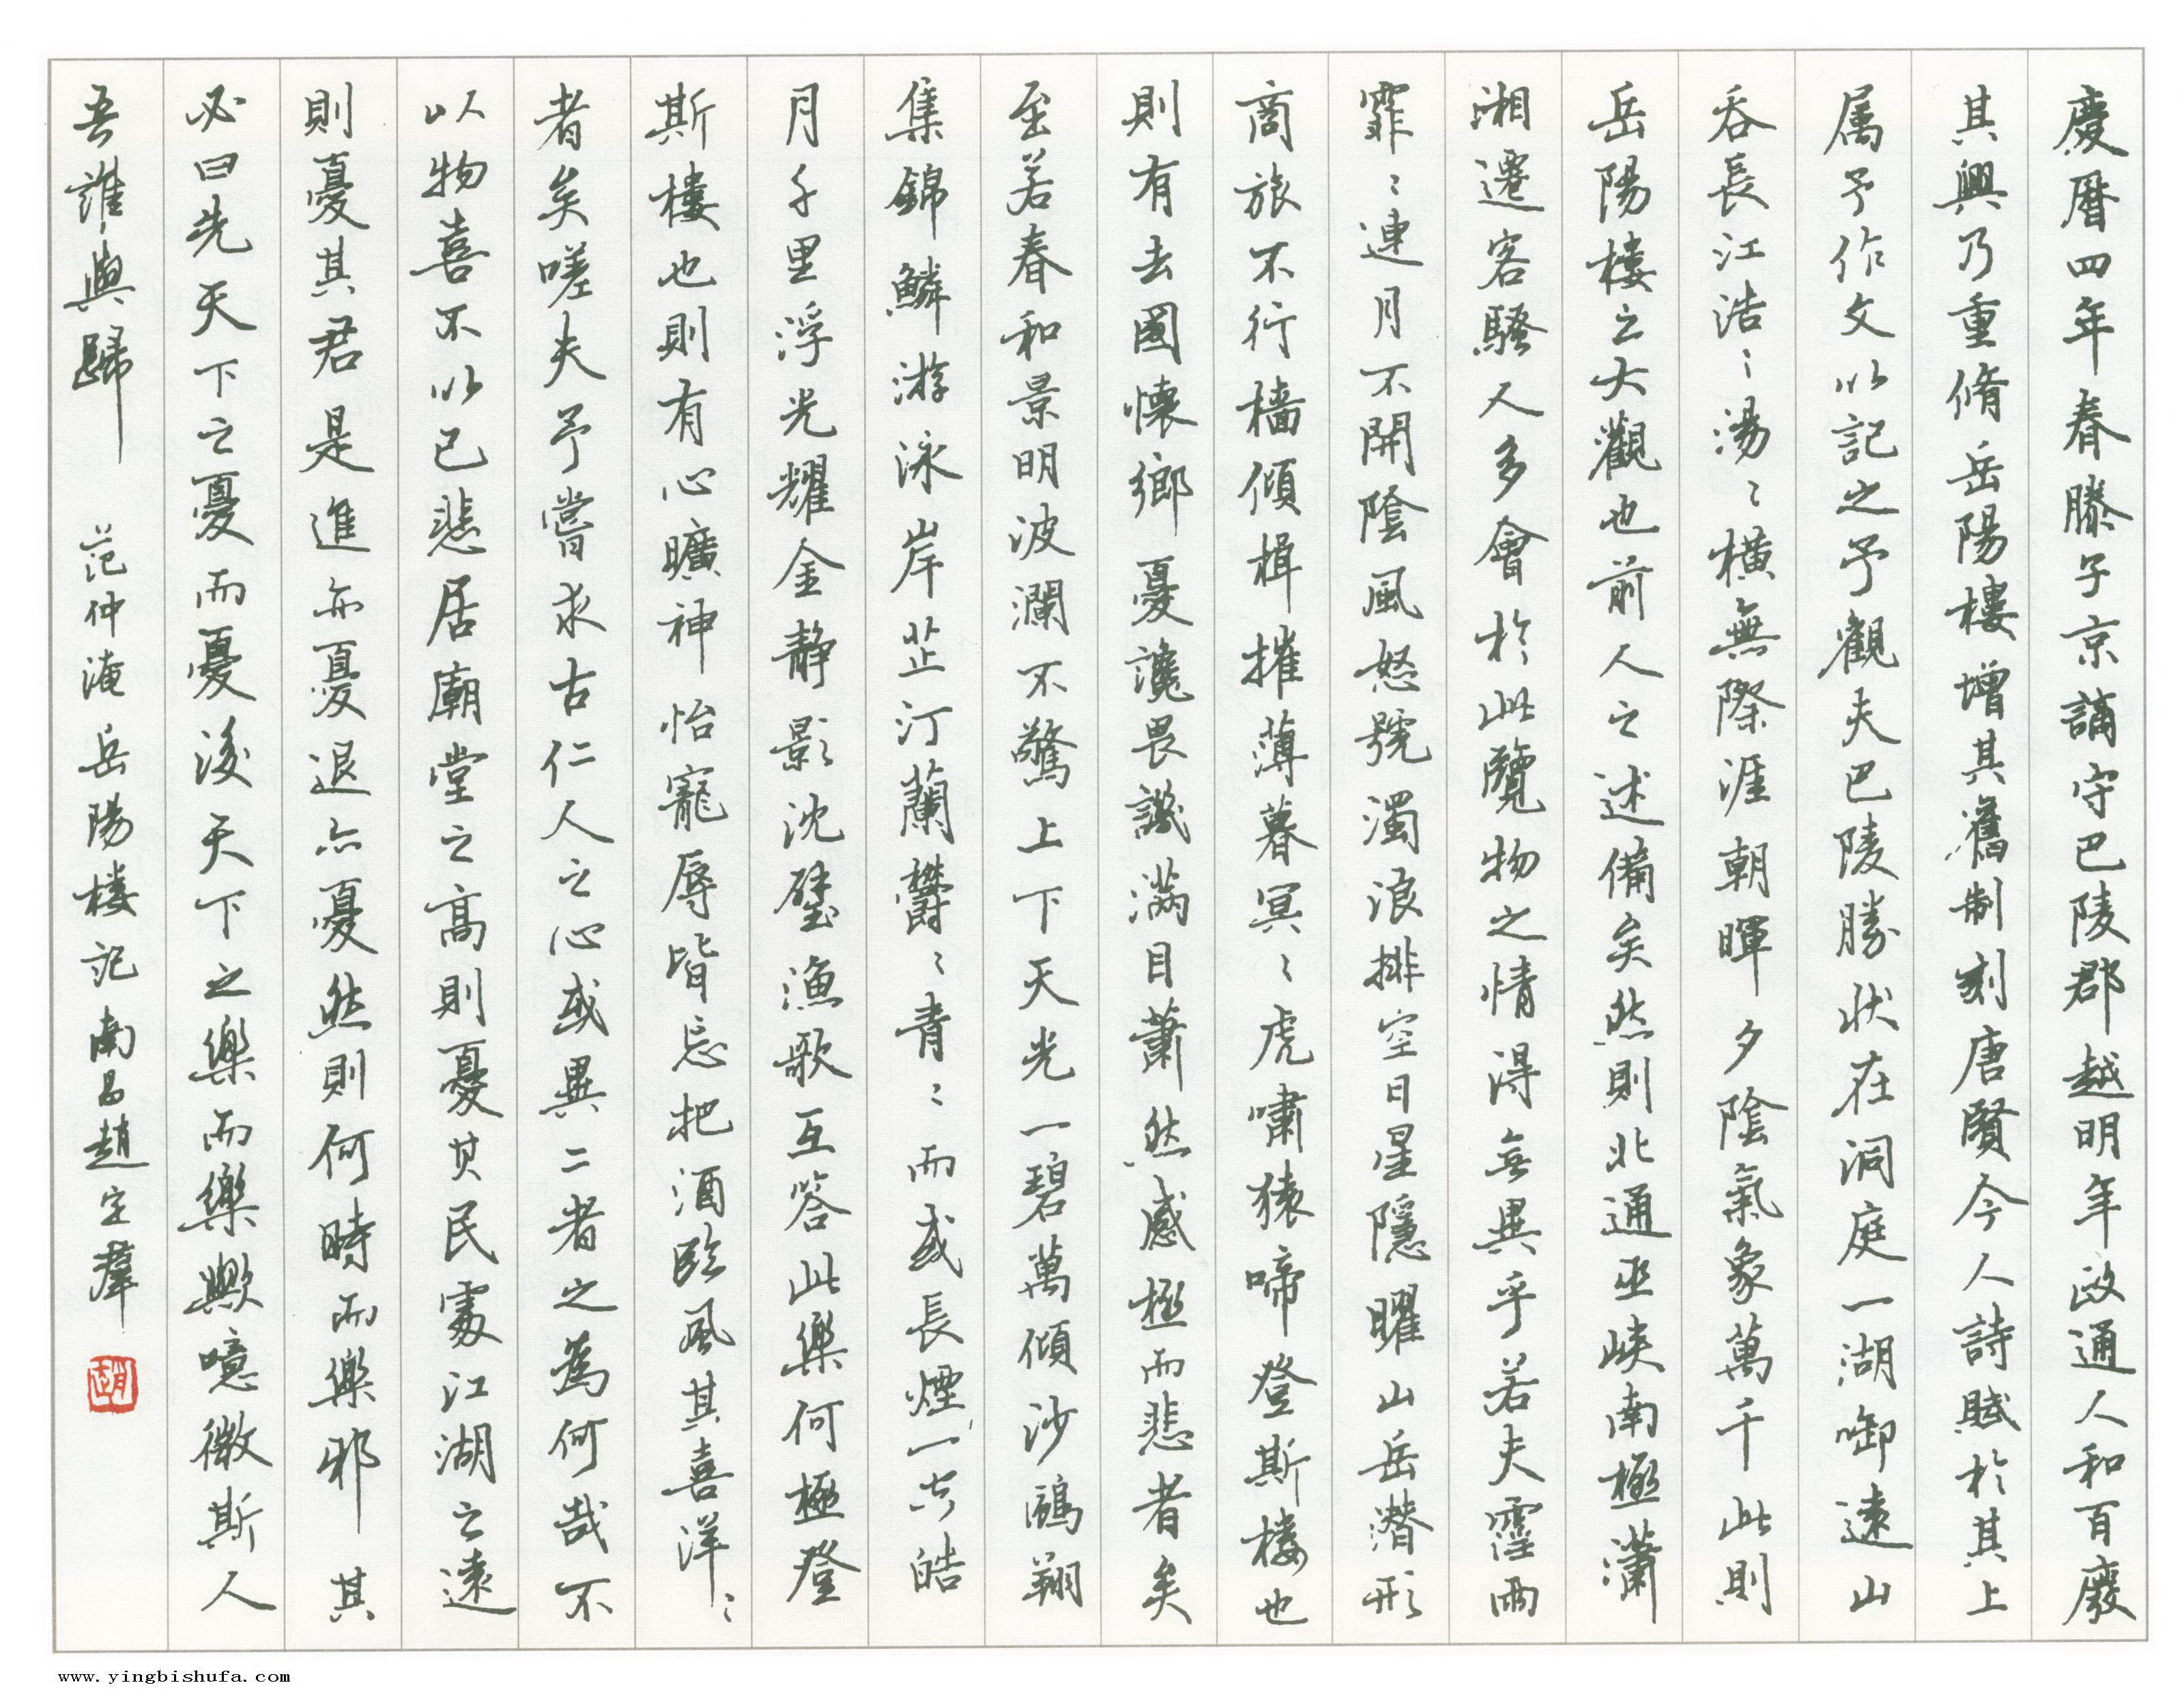 慶曆四年春滕子京謫守巴陵郡越明年政通人和百廢
其興乃重脩岳陽樓增其舊制刻唐賢今人詩賦於其上
属予作文以記之予觀夫巴陵勝状在洞庭一湖啣遠山
吞長江浩〻湯〻橫無際涯朝暉夕陰氣象萬千此則
岳陽樓之大觀也前人之述備矣然則北通巫峽南極瀟
湘遷客騷人多會於此覽物之情得無異乎若夫霪雨
霏〻連月不開陰風怒號濁浪排空日星隱曜山岳潛形
商旅不行檣傾楫摧薄暮冥〻虎嘯猿啼登斯樓也
則有去國懷鄉憂讒畏譏滿目蕭然感極而悲者矣
至若春和景明波瀾不驚上下天光一碧萬傾沙鷗翔
集錦鱗游泳岸芷汀蘭鬱〻青〻而或長煙一空皓
月千里浮光耀金静影沈璧漁歌互答此樂何極登
斯樓也則有心曠神怡寵辱皆忘把酒臨風其喜洋〻
者矣嗟夫予嘗求古仁人之心或異二者之為何哉不
以物喜不以己悲居廟堂之高則憂其民處江湖之遠
則憂其君是進亦憂退亦憂然則何時而樂邪其
必曰先天下之憂而憂後天下之樂而樂歟噫微斯人
吾誰與歸 范仲淹岳陽楼記 南昌趙定群 趙
www.yingbishufa.com